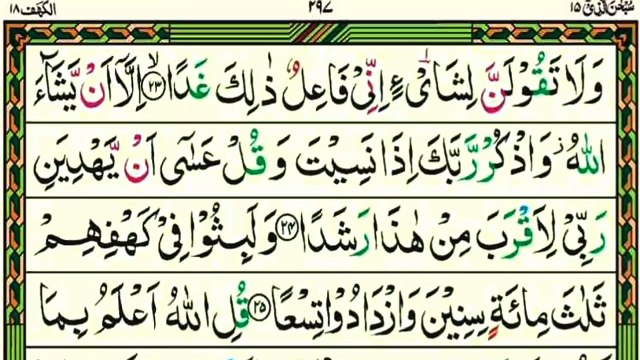 سُبْحٰنَ الَّذِیْ ١٥ ٢٩٧ الکہف ١٨
وَلَا تَقُوْلَنَّ لِشَایْءٍ اِنِّیْ فَاعِلٌ ذٰلِكَ غَدًا ﴿٢٣﴾ اِلَّاۤ اَنْ یَّشَآءَ
اللّٰهُ ؗ وَاذْكُرْ رَّبَّكَ اِذَا نَسِیْتَ وَ قُلْ عَسٰۤى اَنْ یَّهْدِیَنِ
رَبِّیْ لِاَقْرَبَ مِنْ هٰذَا رَشَدًا ﴿٢٤﴾ وَ لَبِثُوْا فِیْ كَهْفِهِمْ
ثَلٰثَ مِائَةٍ سِنِیْنَ وَازْدَادُوْا تِسْعًا ﴿٢٥﴾ قُلِ اللّٰهُ اَعْلَمُ بِمَا